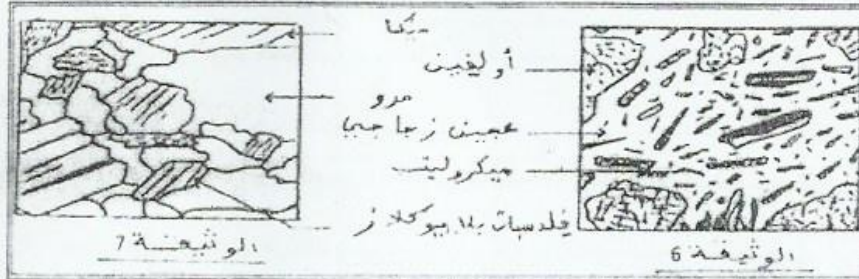 ميكا
أوليفين
مرو
عجين زجاجي
ميكروليت
فلدسبات بلاجيوكلاز
الوثيقة 7
الوثيقة 6